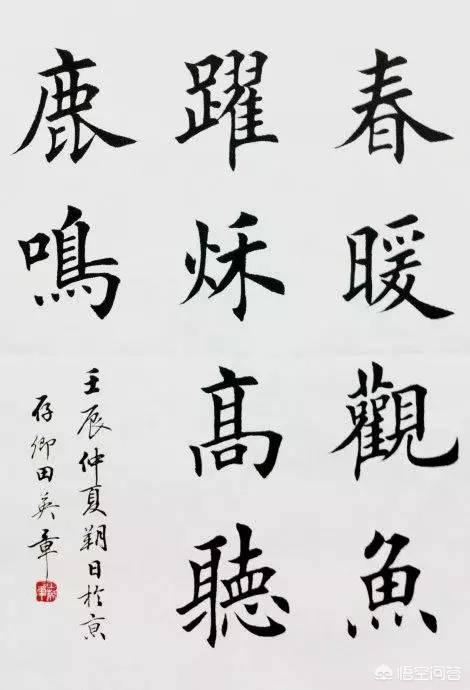 春暖觀魚
躍烌高聽
鹿鳴
壬辰仲夏朔日於京
存卿田英章
悟空问答